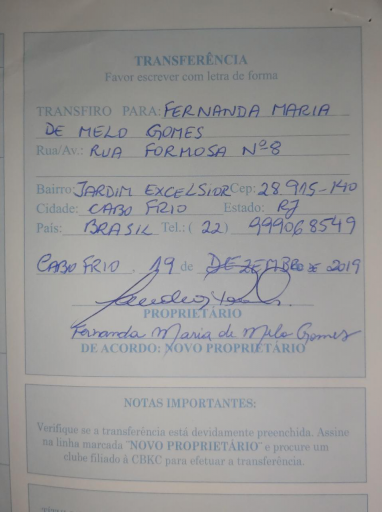 TRANSFERÊNCIA
Favor escrever com letra de forma
TRANSFIRO PARA: FERNANDA MARIA
DE MELO GOMES
Rua/Av.: RUA FORMOSA Nº 8
Bairro: JARDIM EXCELSIOR Cep: 28.915-140
Cidade: CABO FRIO Estado: RJ
País: BRASIL Tel.: (22) 999068549
CABO FRIO, 19 de DEZEMBRO DE 2019
PROPRIETÁRIO
Fernanda Maria de Melo Gomes
DE ACORDO: NOVO PROPRIETÁRIO
NOTAS IMPORTANTES:
Verifique se a transferência está devidamente preenchida. Assine
na linha marcada "NOVO PROPRIETÁRIO" e procure um
clube filiado à CBKC para efetuar a transferência.